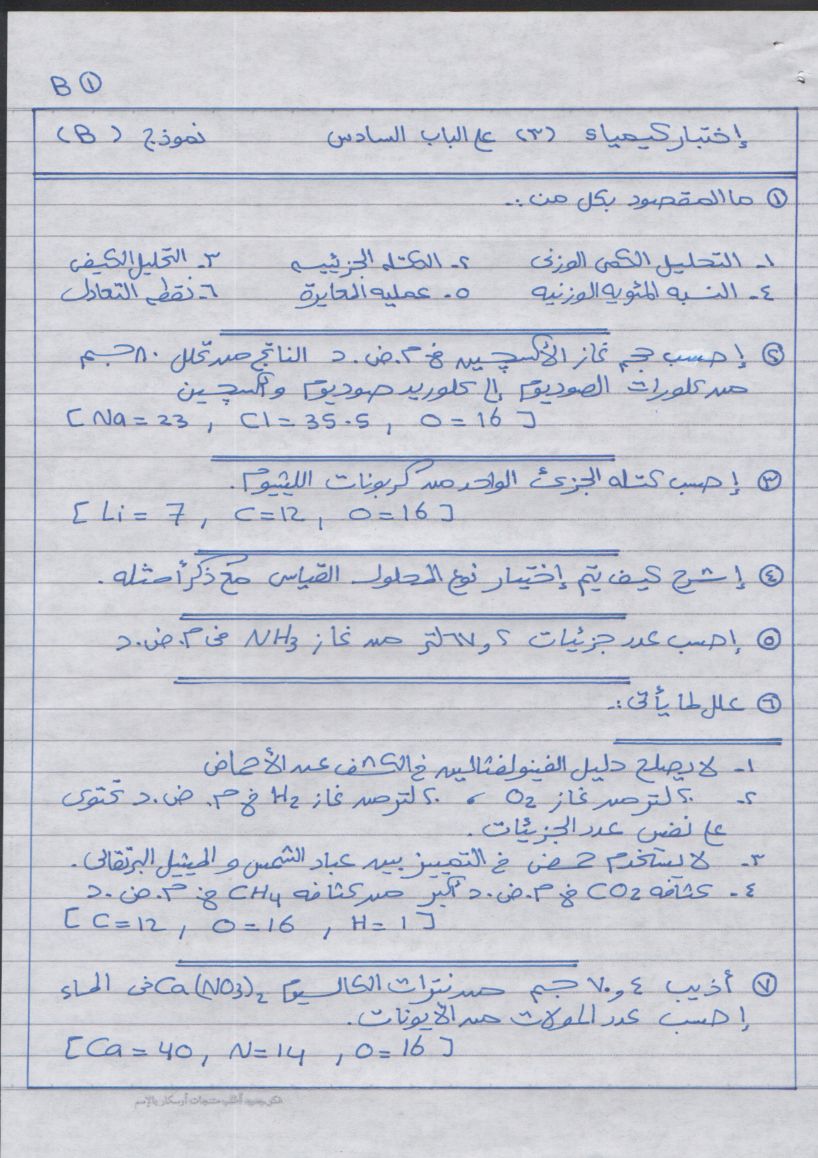 B ①
إختبار كيمياء (٣) على الباب السادس نموذج (B)
① ما المقصود بكل من :-
١- التحليل الكمى الوزنى ٢- الكتله الجزيئيه ٣- التحليل الكيفى
٤- النسبه المئويه الوزنيه ٥- عمليه المعايرة ٦- نقطه التعادل
② إحسب حجم غاز الأكسچين فى م.ض.د الناتج من تحلل ٨٠ جم
من كلورات الصوديوم إلى كلوريد صوديوم وأكسچين
[ Na = 23 , Cl = 35.5 , O = 16 ]
③ إحسب كتله الجزئ الواحد من كربونات الليثيوم.
[ Li = 7 , C=12 , O=16 ]
④ إشرح كيف يتم إختيار نوع المحلول القياسى مع ذكر أمثله .
⑤ إحسب عدد جزيئات ٦٧,٢ لتر من غاز NH3 فى م.ض.د
⑥ علل لما يأتى :-
١- لا يصلح دليل الفينولفثالين فى الكشف عن الأحماض
٢- ٢٠ لتر من غاز O2 ، ٢٠ لتر من غاز H2 فى م.ض.د تحتوى
على نفس عدد الجزيئات .
٣- لا يستخدم حمض فى التمييز بين عباد الشمس و الميثيل البرتقالى .
٤- كثافه CO2 فى م.ض.د أكبر من كثافه CH4 فى م.ض.د
[ C=12 , O=16 , H=1 ]
⑦ أذيب ٧٠,٤ جم من نترات الكالسيوم Ca(NO3)2 فى الماء
إحسب عدد المولات من الأيونات.
[Ca = 40 , N=14 , O=16 ]